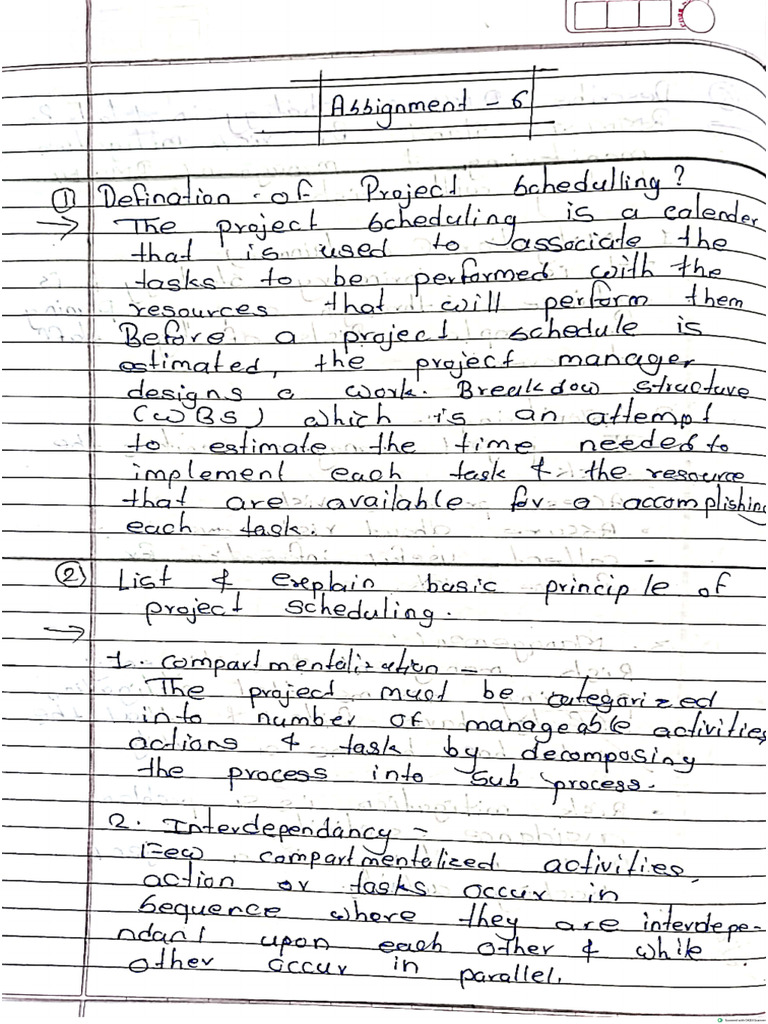 Assignment - 6
① Defination of Project schedulling?
→ The project scheduling is a calender
that is used to associate the
tasks to be performed with the
resources that will perform them
Before a project schedule is
estimated, the project manager
designs a work Breakdow structure
(WBS) which is an attempt
to estimate the time needed to
implement each task & the resource
that are available for a accomplishing
each task.
② List & explain basic principle of
project scheduling.
→
1. compartmentalization -
The project must be categorized
into number of manageable activities,
actions & task by decomposing
the process into sub process.
2. Interdependancy -
Few compartmentalized activities,
action or tasks occur in
sequence where they are interdepe-
ndant upon each other & while
other occur in parallel.